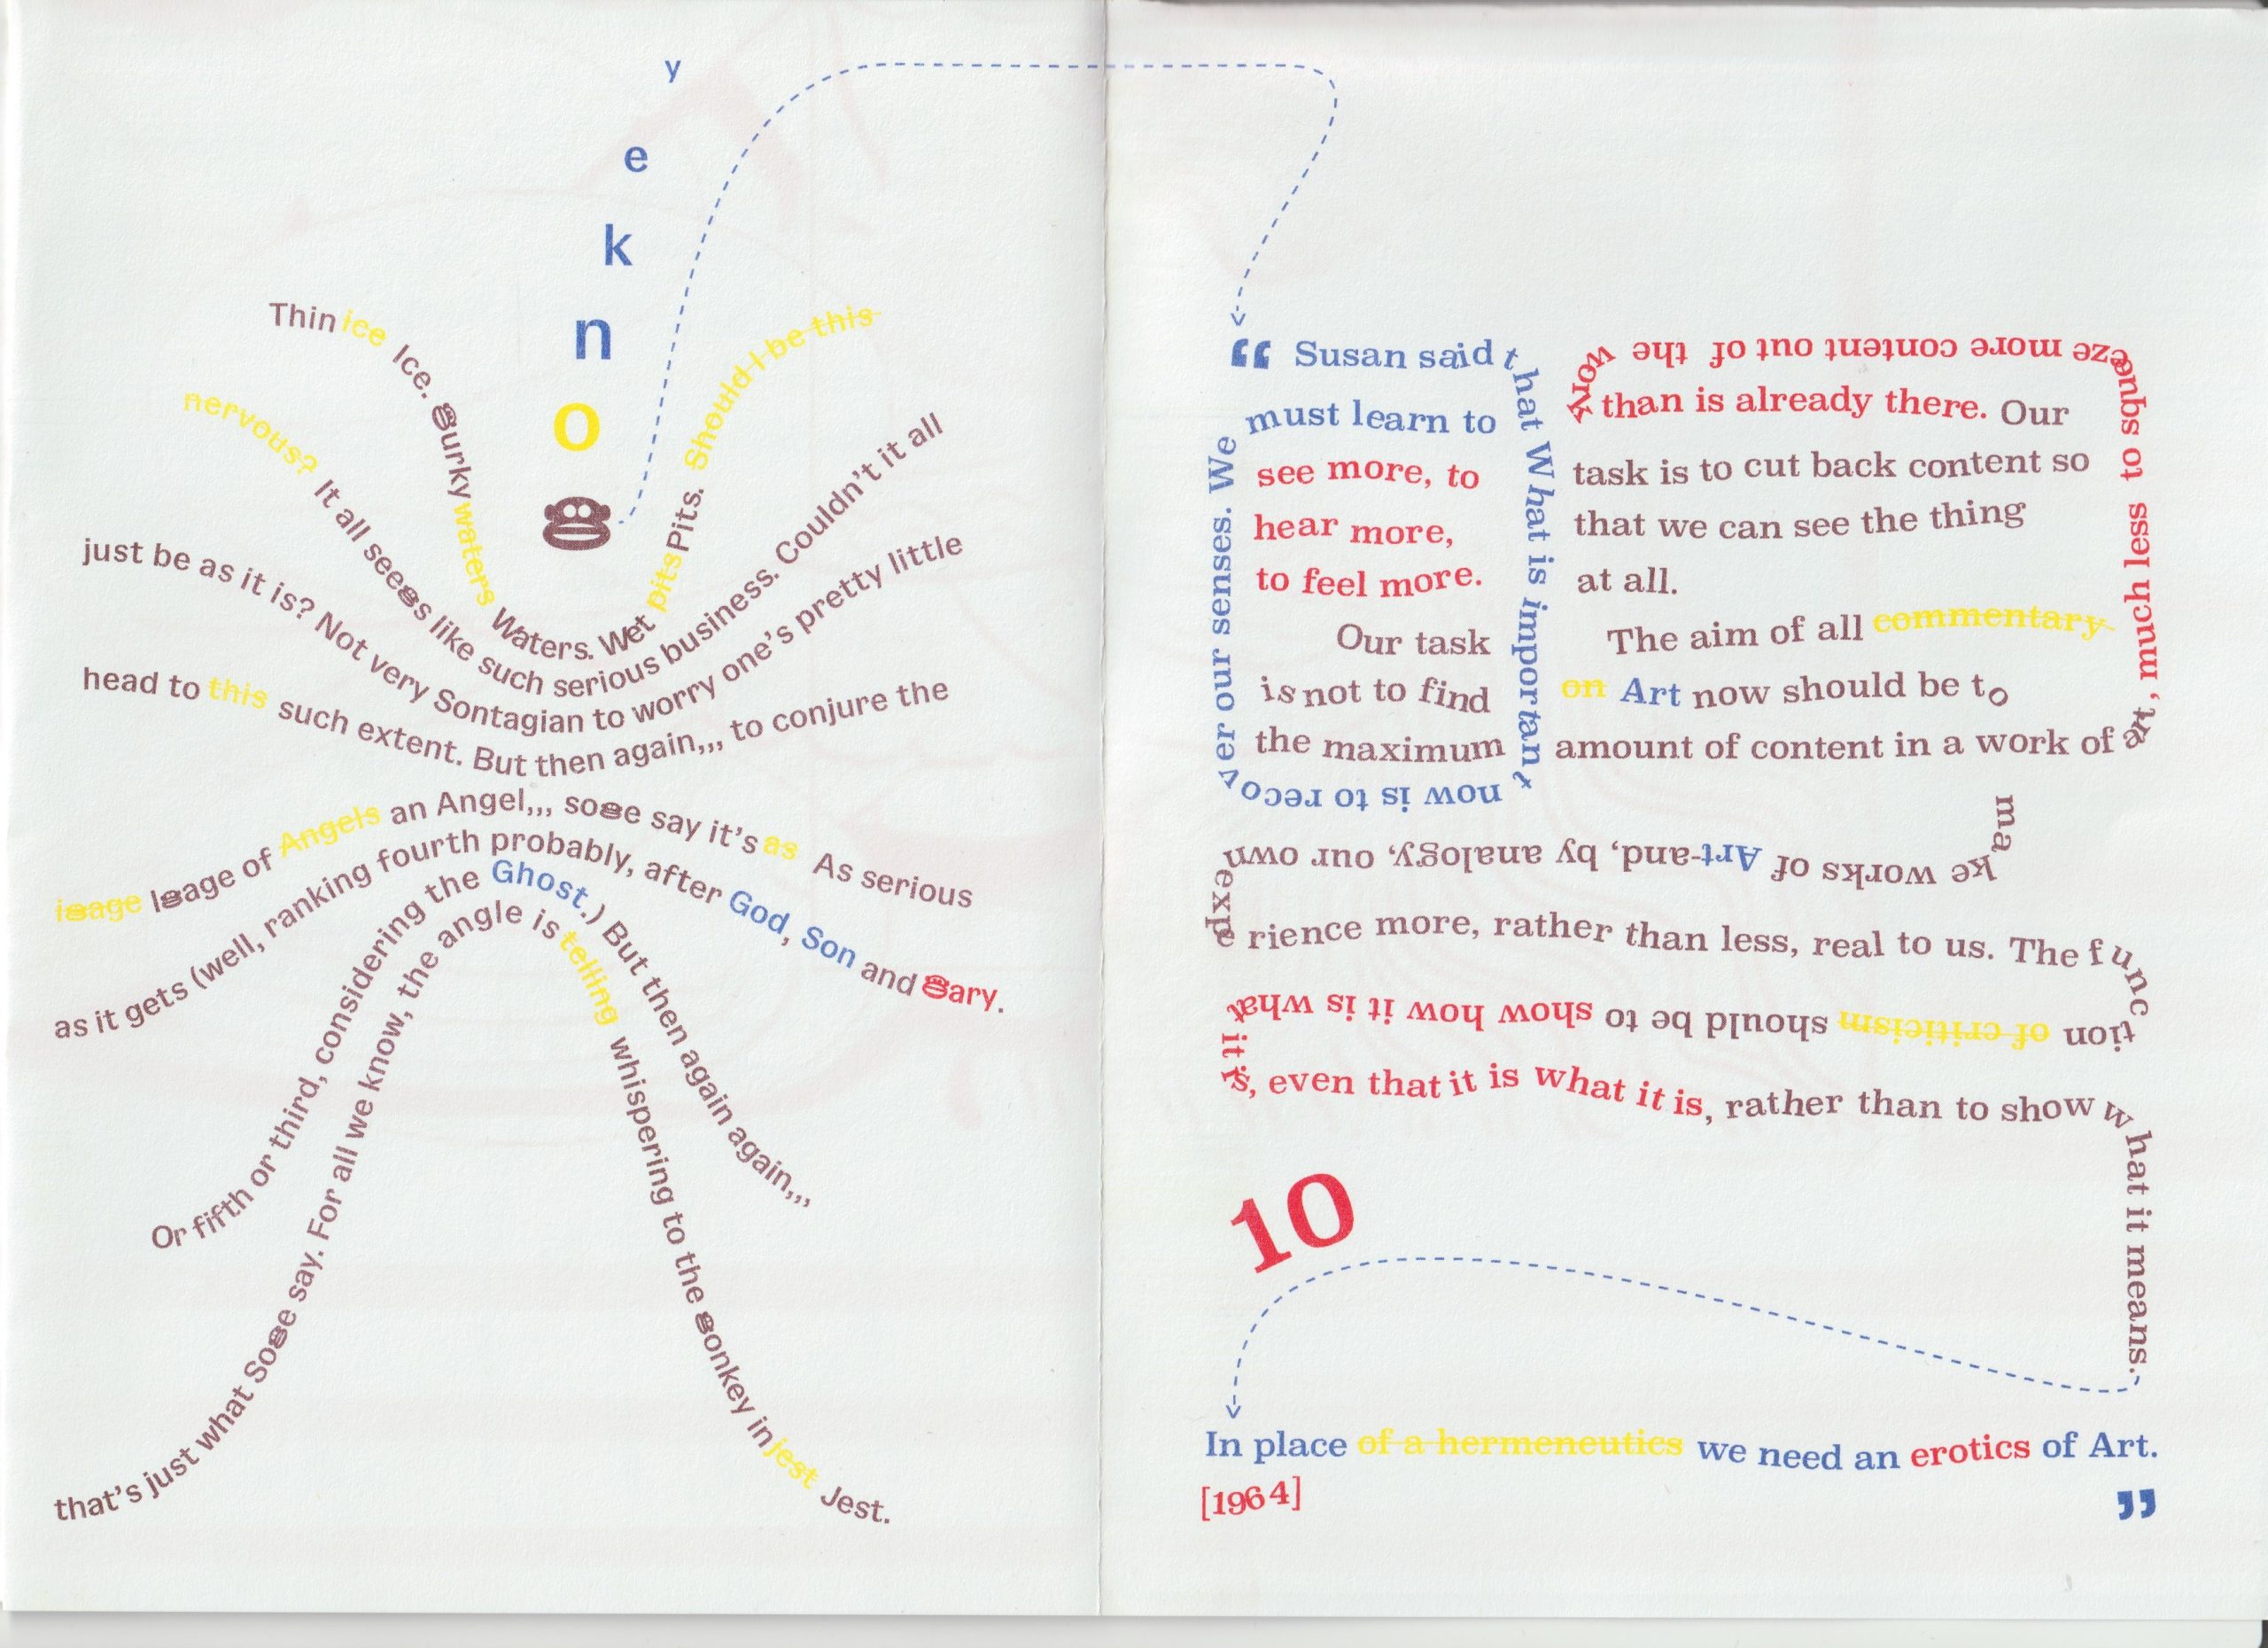 y
e
k
n
o
m
Thin ice Ice. Murky waters Waters. Wet pits Pits. Should I be this
nervous? It all seems like such serious business. Couldn't it all
just be as it is? Not very Sontagian to worry one's pretty little
head to this such extent. But then again,,, to conjure the
image Image of Angels an Angel,,, some say it's as As serious
as it gets (well, ranking fourth probably, after God, Son and Mary.
Or fifth or third, considering the Ghost.) But then again again,,,
that's just what Some say. For all we know, the angle is telling whispering to the monkey in jest Jest.
“ Susan said that What is important
now is to recover our senses. We
must learn to
see more, to
hear more,
to feel more.
Our task
is not to find
the maximum amount of content in a work of
art, much less to squeeze more content out of the work
than is already there. Our
task is to cut back content so
that we can see the thing
at all.
The aim of all commentary
on Art now should be to
make works of Art-and, by analogy, our own
experience more, rather than less, real to us. The func
tion of criticism should be to show how it is what
it is, even that it is what it is, rather than to show
what it means.
10
In place of a hermeneutics we need an erotics of Art.
[1964]
”